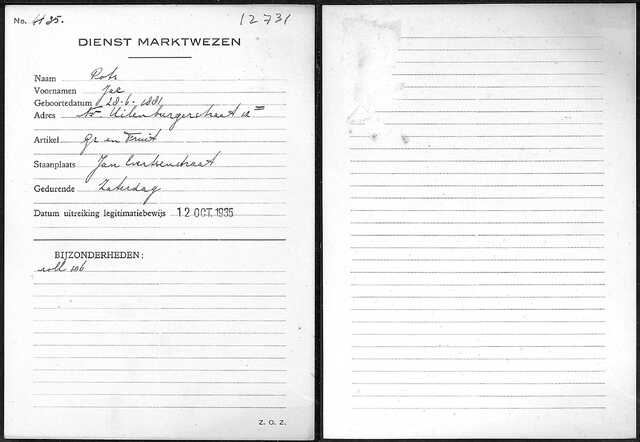 No. 4185. 12731
DIENST MARKTWEZEN
Naam Rots
Voornamen Jac
Geboortedatum 28-6-1881
Adres Nw Uilenburgerstraat 12 III
Artikel Gr en Fruit
Staanplaats Jan Evertsenstraat
Gedurende Zaterdag
Datum uitreiking legitimatiebewijs 12 OCT. 1935
BIJZONDERHEDEN:
Z. O. Z.